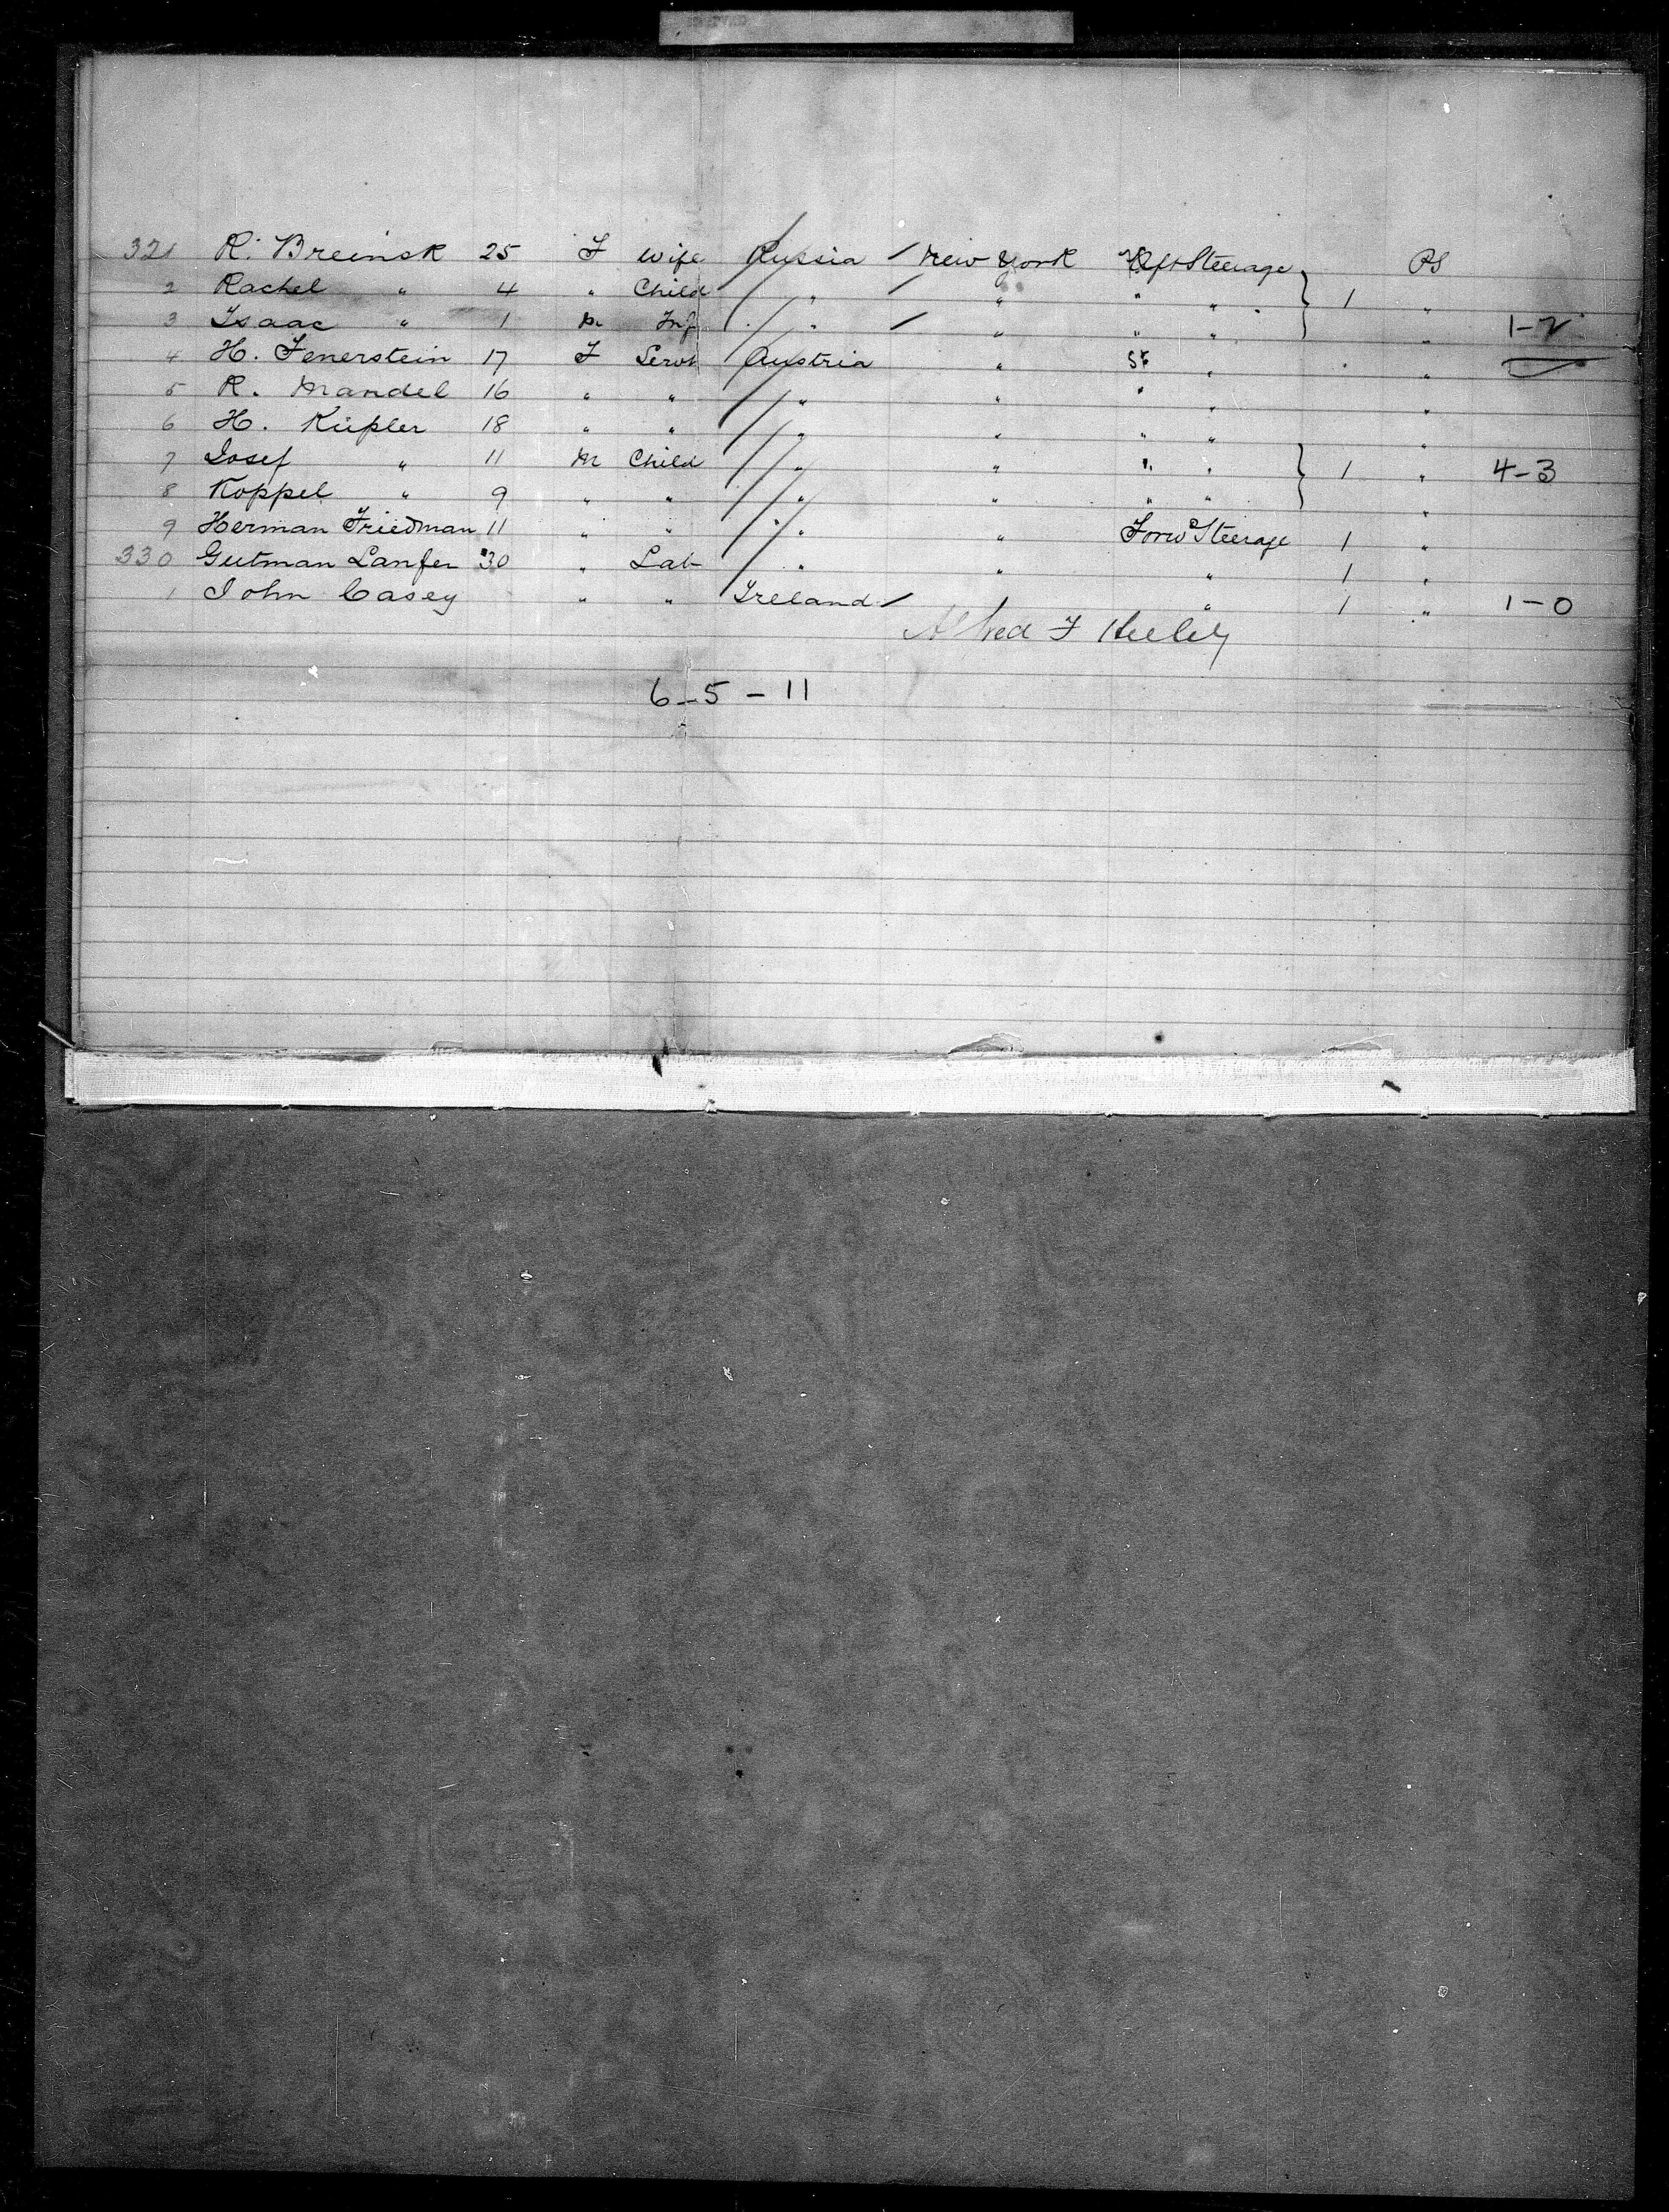 321 R. Breinsk 25 F Wife Russia New York Aft Steerage PS
2 Rachel " 4 " Child " " " " 1 "
3 Isaac " 1 M Inf " " " " " 1-2
4 H. Fenerstein 17 F Servt Austria " St " "
5 R. Mandel 16 " " " " " " "
6 H. Küpler 18 " " " " " " "
7 Josef " 11 M Child " " " " 1 " 4-3
8 Koppel " 9 " " " " " " "
9 Herman Friedman 11 " " " " Forwd Steerage 1 "
330 Gutman Lanfer 30 " Lab " " " 1 "
1 John Casey " " Ireland " 1 " 1-0
Alfred F
6-5-11